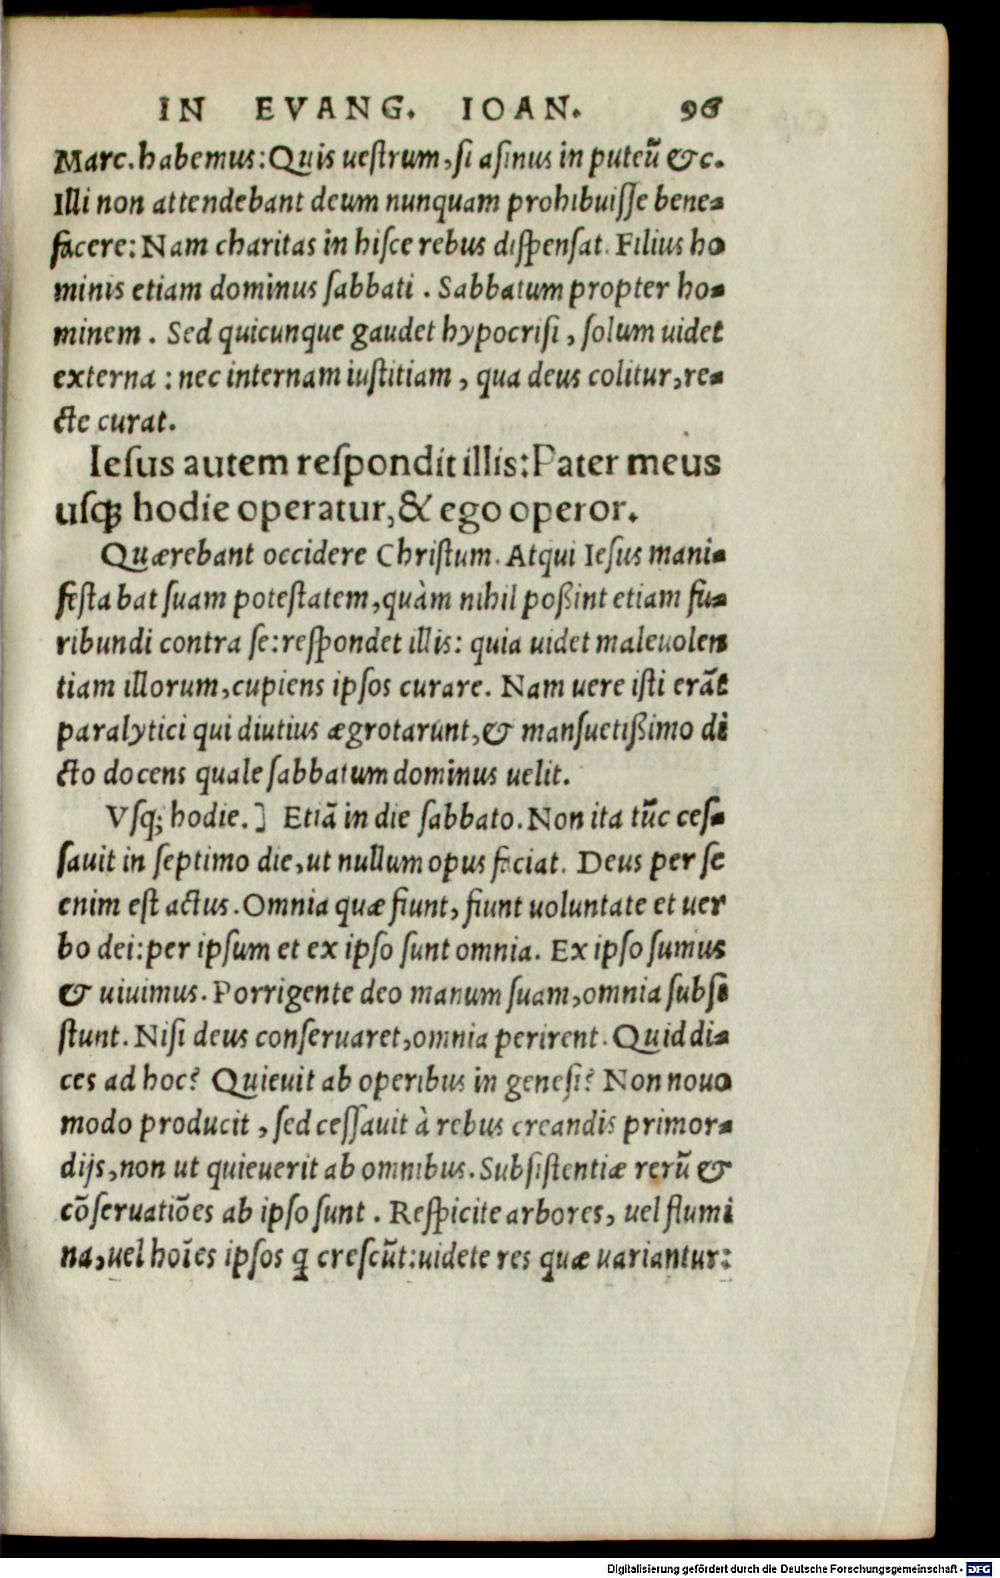 IN EVANG. IOAN. 96
Marc. habemus: Quis uestrum, si asinus in puteū &c.
Illi non attendebant deum nunquam prohibuiſſe bene-
facere: Nam charitas in hiſce rebus diſpenſat. Filius ho
minis etiam dominus ſabbati. Sabbatum propter ho-
minem. Sed quicunque gaudet hypocriſi, ſolum uidet
externa: nec internam iuſtitiam, qua deus colitur, re-
cte curat.
Ieſus autem reſpondit illis: Pater meus
uſqꝫ hodie operatur, & ego operor.
Quærebant occidere Chriſtum. Atqui Ieſus mani-
feſtabat ſuam poteſtatem, quàm nihil poßint etiam fu-
ribundi contra ſe: reſpondet illis: quia uidet maleuolen
tiam illorum, cupiens ipſos curare. Nam uere iſti erāt
paralytici qui diutius ægrotarunt, & manſuetißimo di
cto docens quale ſabbatum dominus uelit.
Vſq; hodie.] Etiā in die ſabbato. Non ita tūc ceſ-
ſauit in ſeptimo die, ut nullum opus faciat. Deus per ſe
enim eſt actus. Omnia quæ fiunt, fiunt uoluntate et uer
bo dei: per ipſum et ex ipſo ſunt omnia. Ex ipſo ſumus
& uiuimus. Porrigente deo manum ſuam, omnia ſubſi
ſtunt. Niſi deus conſeruaret, omnia perirent. Quid di-
ces ad hoc? Quieuit ab operibus in geneſi? Non nouo
modo producit, ſed ceſſauit à rebus creandis primor-
dijs, non ut quieuerit ab omnibus. Subſiſtentiæ rerū &
cōſeruatiōes ab ipſo ſunt. Reſpicite arbores, uel flumi
na, uel hoīes ipſos q̄ creſcūt: uidete res quæ uariantur:
Digitalisierung gefördert durch die Deutsche Forschungsgemeinschaft - DFG